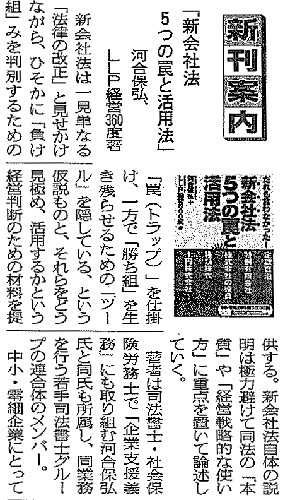 新刊案内
「新会社法
5つの罠と活用法」
河合保弘、
LLP経営360度著
新会社法は一見単なる
「法律の改正」と見せかけ
ながら、ひそかに「負け
組」みを判別するための
「罠(トラップ)」を仕掛
け、一方で「勝ち組」を生
き残らせるための「ツー
ル」を隠している、という
仮説ものと、それらをどう
見極め、活用するかという
経営判断のための材料を提
供する。新会社法自体の説
明は極力避けて同法の「本
質」や「経営戦略的な使い
方」に重点を置いて論述し
ていく。
著者は司法書士・社会保
険労務士で「企業支援義
務」にも取り組む河合保弘
氏と同氏も所属し、同業務
を行う若手司法書士グルー
プの連合体のメンバー。
中小・零細企業にとって
新会社法
5つの罠と
活用法